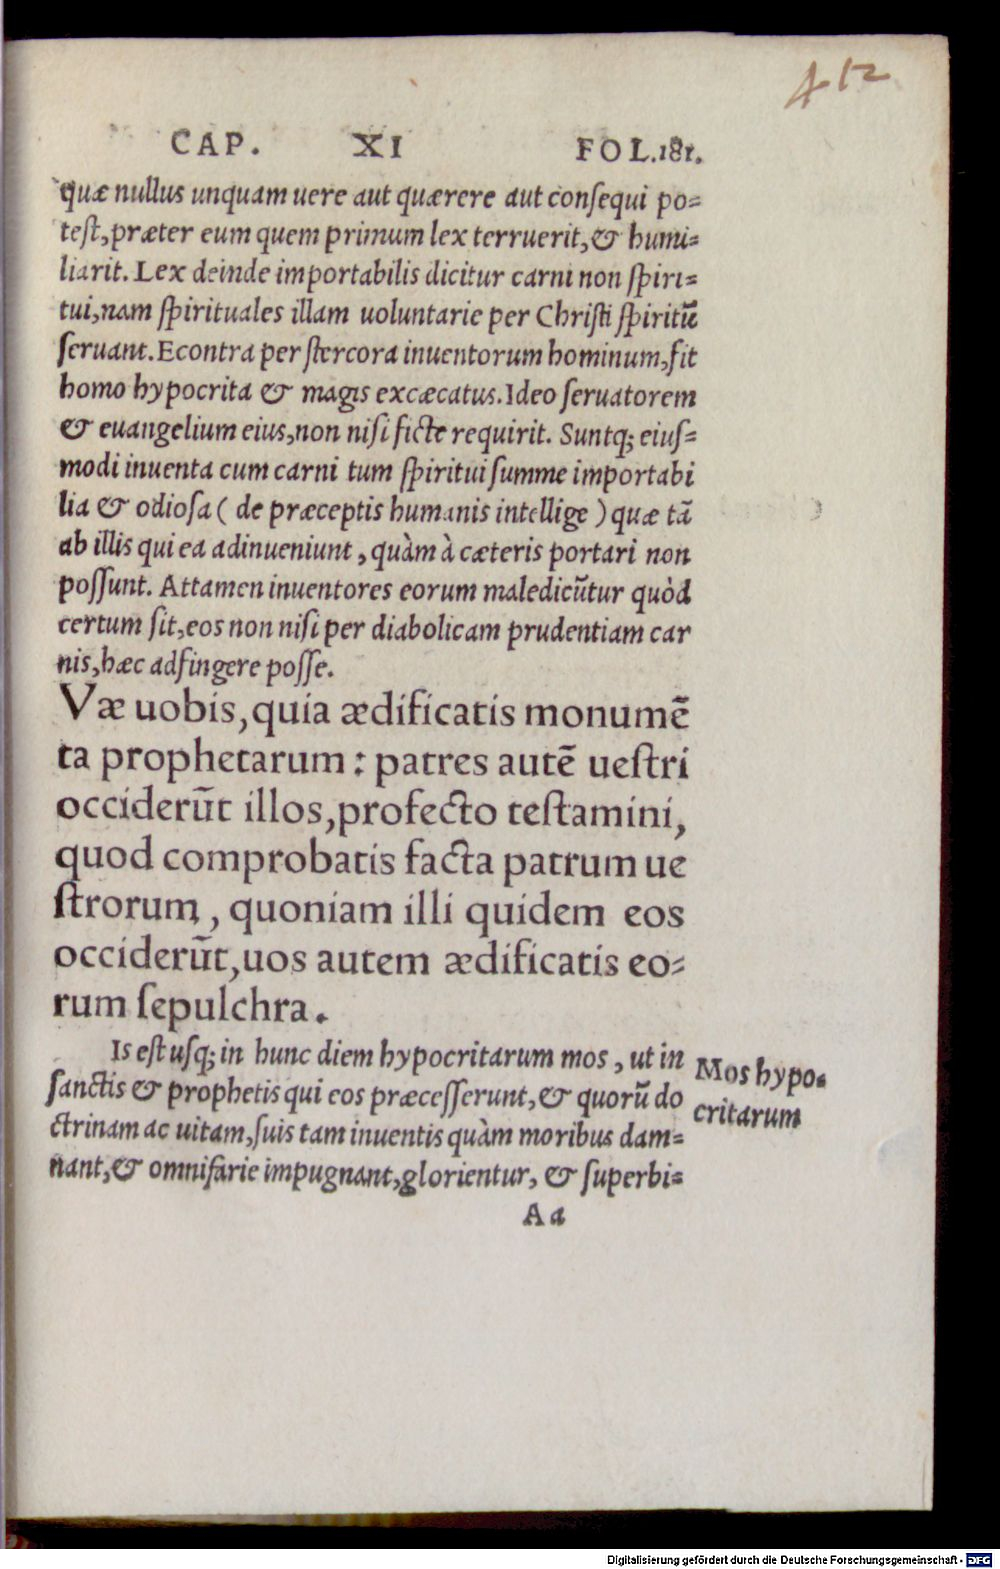 412
CAP. XI FOL.181.
quæ nullus unquam uere aut quærere aut consequi po=
test,præter eum quem primum lex terruerit,& humi=
liarit. Lex deinde importabilis dicitur carni non spiri=
tui,nam spirituales illam uoluntarie per Christi spiritū
seruant. Econtra per stercora inuentorum hominum,fit
homo hypocrita & magis excæcatus. Ideo seruatorem
& euangelium eius,non nisi ficte requirit. Suntq; eius=
modi inuenta cum carni tum spiritui summe importabi
lia & odiosa ( de præceptis humanis intellige ) quæ tā
ab illis qui ea adinueniunt , quàm à cæteris portari non
possunt. Attamen inuentores eorum maledicūtur quòd
certum sit,eos non nisi per diabolicam prudentiam car
nis,hæc adfingere posse.
Væ uobis,quia ædificatis monumē
ta prophetarum : patres autē uestri
occiderūt illos,profecto testamini,
quod comprobatis facta patrum ue
strorum , quoniam illi quidem eos
occiderūt,uos autem ædificatis eo=
rum sepulchra.
Is est usq; in hunc diem hypocritarum mos , ut in
sanctis & prophetis qui eos præcesserunt,& quorū do
ctrinam ac uitam,suis tam inuentis quàm moribus dam=
nant,& omnifarie impugnant,glorientur, & superbi=
Mos hypo=
critarum
Aa
Digitalisierung gefördert durch die Deutsche Forschungsgemeinschaft - DFG